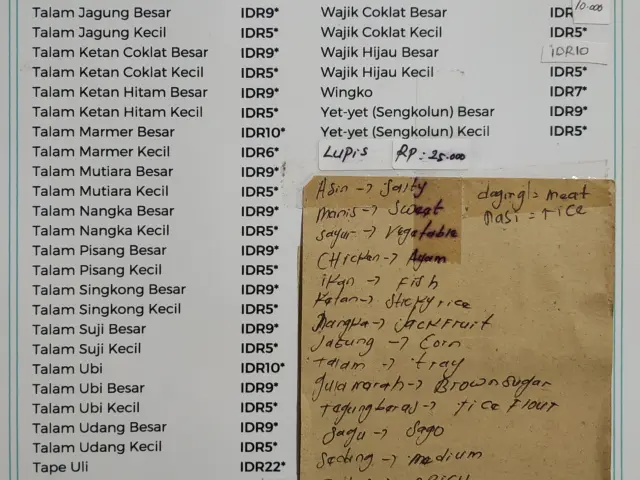 Talam Jagung Besar IDR9*
Talam Jagung Kecil IDR5*
Talam Ketan Coklat Besar IDR9*
Talam Ketan Coklat Kecil IDR5*
Talam Ketan Hitam Besar IDR9*
Talam Ketan Hitam Kecil IDR5*
Talam Marmer Besar IDR10*
Talam Marmer Kecil IDR6*
Talam Mutiara Besar IDR9*
Talam Mutiara Kecil IDR5*
Talam Nangka Besar IDR9*
Talam Nangka Kecil IDR5*
Talam Pisang Besar IDR9*
Talam Pisang Kecil IDR5*
Talam Singkong Besar IDR9*
Talam Singkong Kecil IDR5*
Talam Suji Besar IDR9*
Talam Suji Kecil IDR5*
Talam Ubi IDR10*
Talam Ubi Besar IDR9*
Talam Ubi Kecil IDR5*
Talam Udang Besar IDR9*
Talam Udang Kecil IDR5*
Tape Uli IDR22*
Wajik Coklat Besar IDR 10.000
Wajik Coklat Kecil IDR5*
Wajik Hijau Besar IDR10
Wajik Hijau Kecil IDR5*
Wingko IDR7*
Yet-yet (Sengkolun) Besar IDR9*
Yet-yet (Sengkolun) Kecil IDR5*
Lupis RP: 25.000
Asin -> Salty
manis -> Sweet
sayur -> Vegetable
CHicken -> Ayam
ikan -> Fish
Ketan -> Sticky rice
Nangka -> jackFruit
Jagung -> Corn
talam -> tray
gula marah -> Brown Sugar
tepung beras -> rice Flour
Sagu -> Sago
Sedang -> medium
daging = meat
nasi = rice